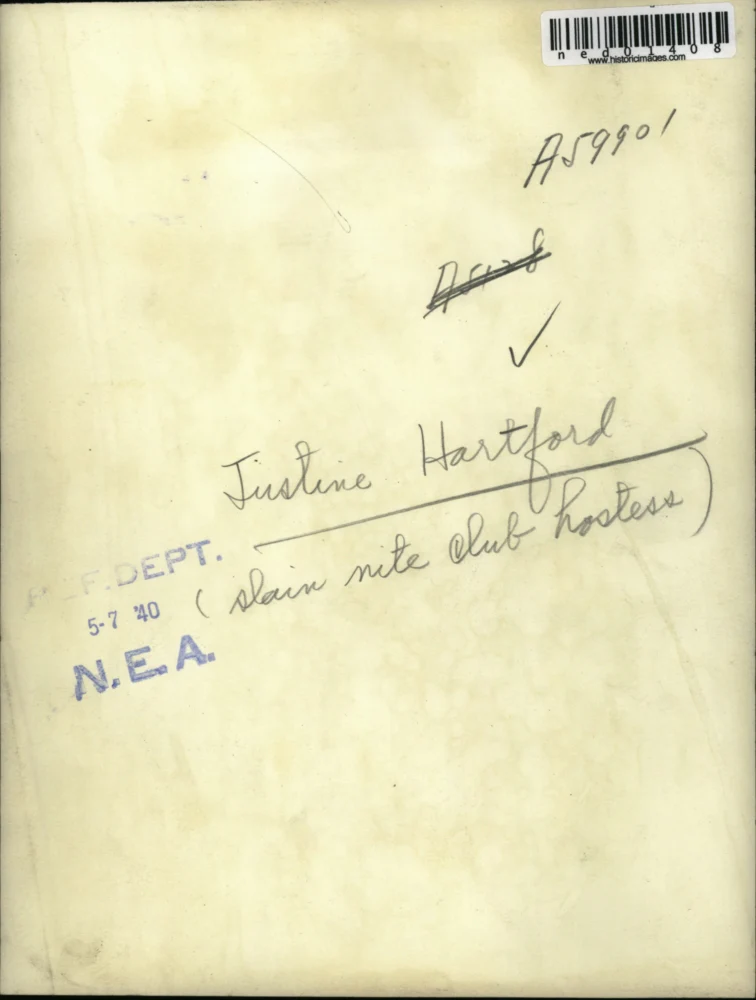 ned01408
www.historicimages.com
A59901
✓
Justine Hartford
(slain nite club hostess)
F. DEPT.
5-7 '40
N.E.A.